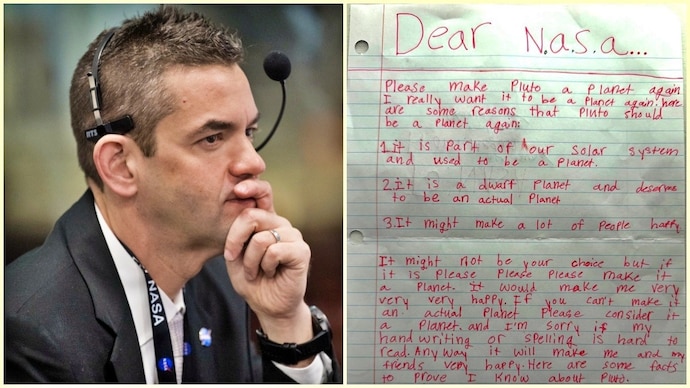 RTS
NASA
Dear N.a.s.a...
Please make Pluto a Planet again
I really want it to be a Planet again. here
are some reasons that Pluto should
be a Planet again:
1.It is Part of our solar system
and used to be a Planet.
2.It is a dwarf Planet and deserve
to be an actual Planet
3.It might make a lot of people happy
It might not be your choice but if
it is Please Please Please make it
a Planet. It would make me very
very very happy. If you can't make it
an actual Planet Please consider it
a Planet. and I'm sorry if my
hand writing or spelling is hard to
read. Any way it will make me and my
friends very happy. Here are some facts
to Prove I Know about Pluto.